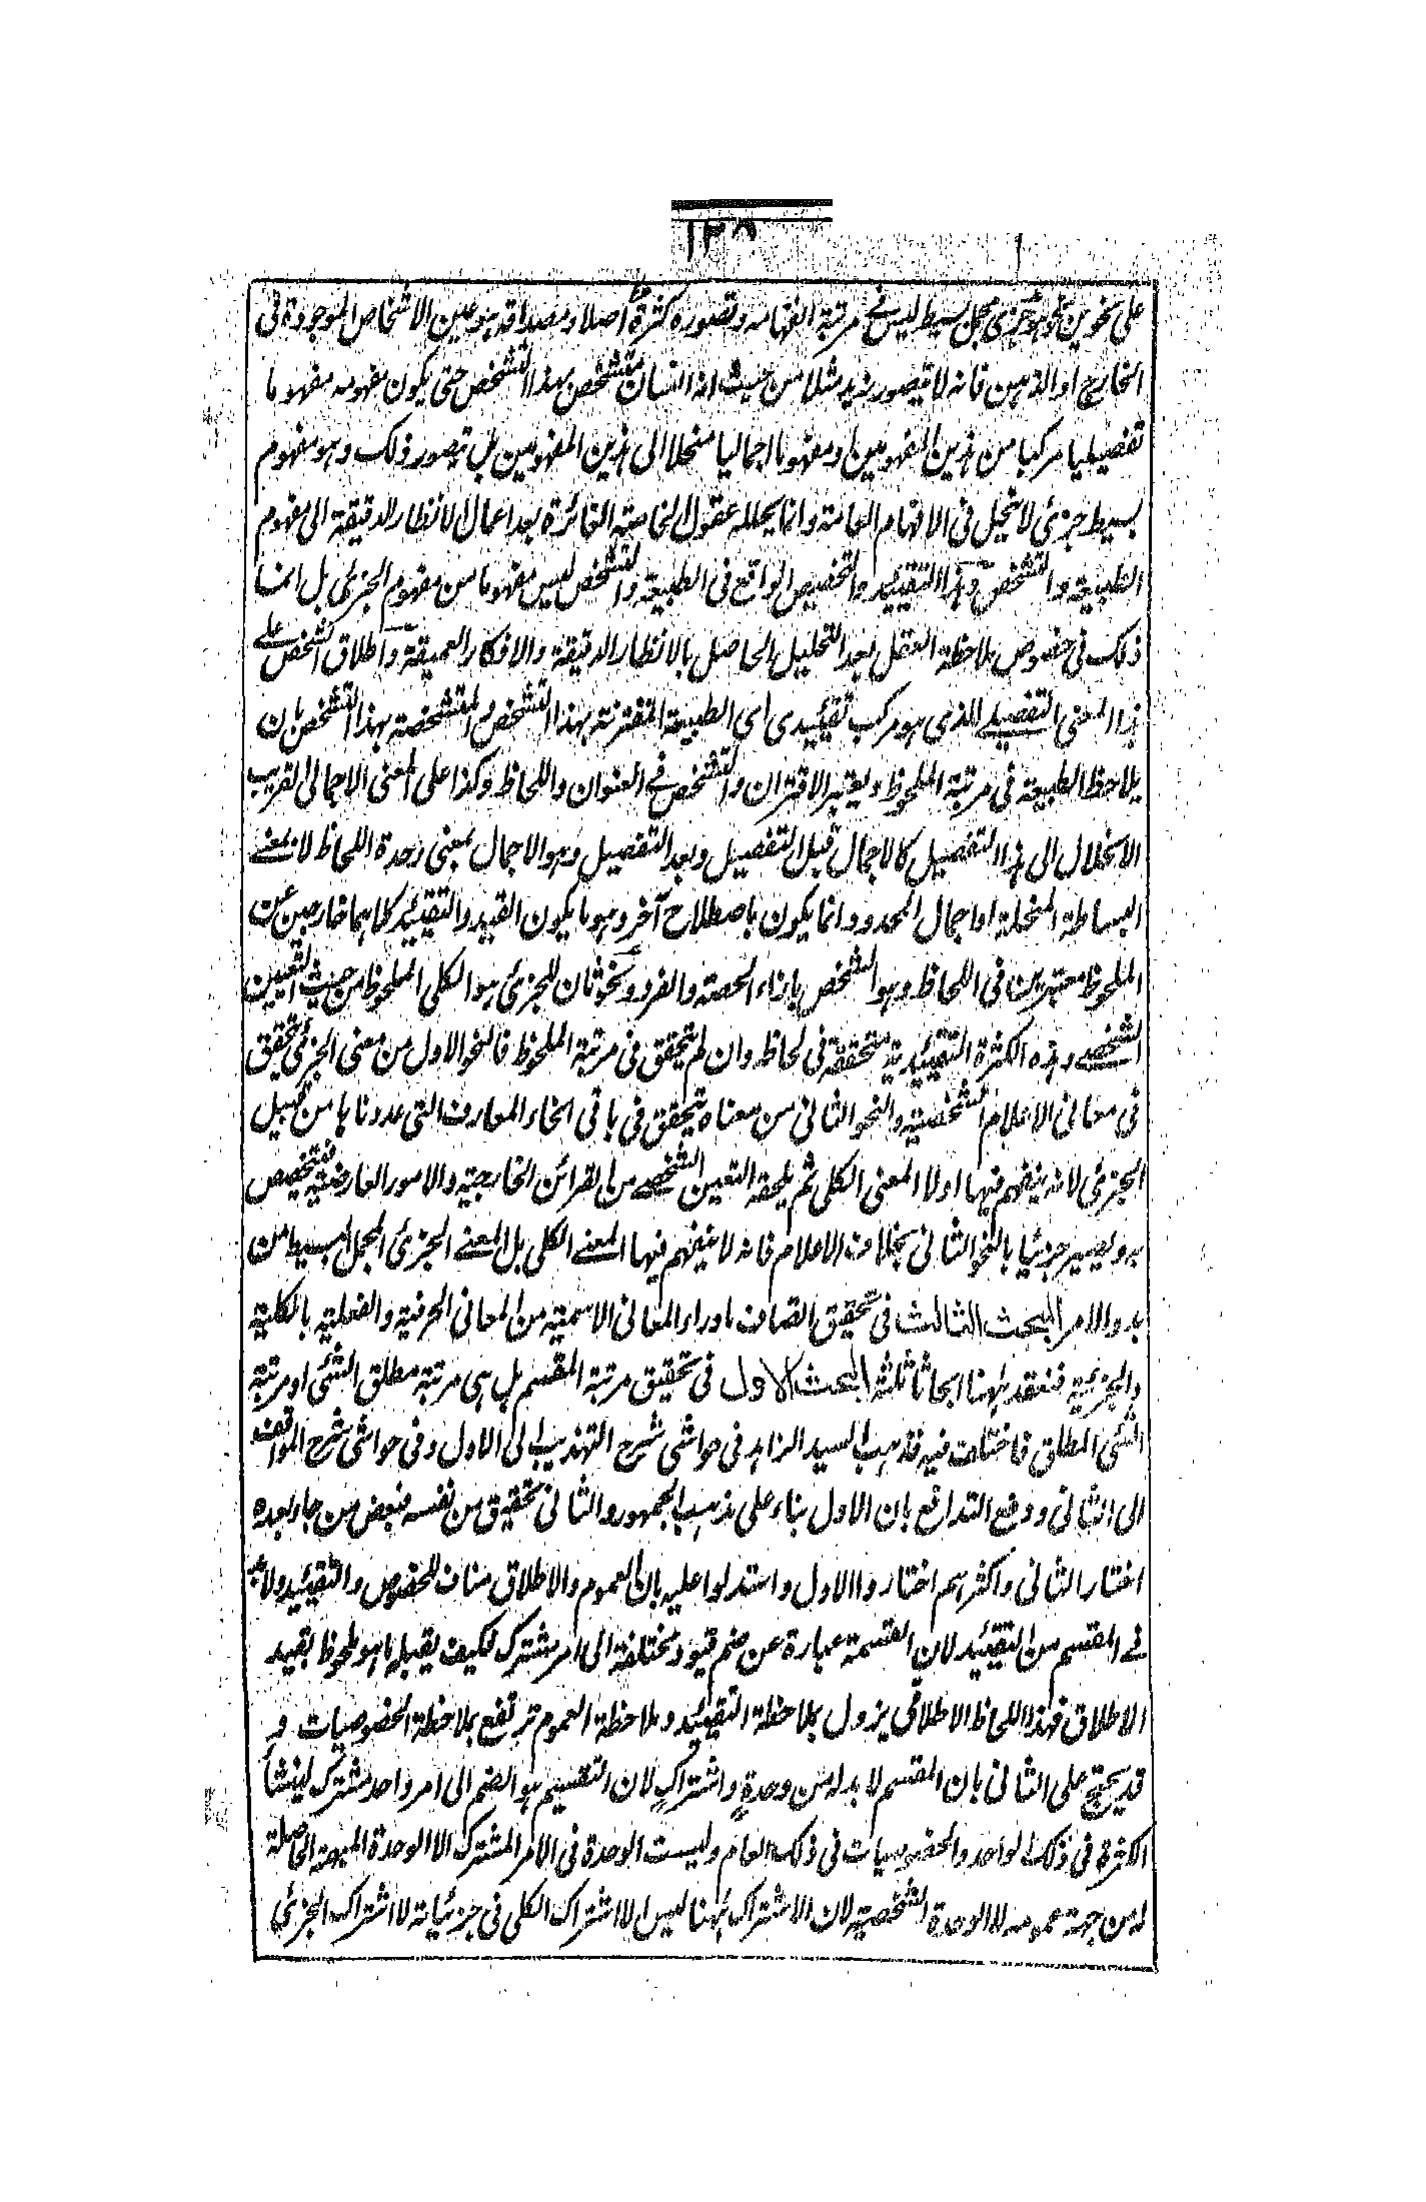 ١٢٥
على نحوين نحو هو جزئي مجمل بسيط ليس في مرتبة انفهامه وتصوره كثرة اصلا ومصداقه هو عين الاشخاص الموجودة في
الخارج او الذهن فانه لا يتصور زيد مثلا من حيث انه انسان متشخص بهذا التشخص حتى يكون مفهومه مفهوما
تفصيليا مركبا من هذين المفهومين او مفهوما اجماليا منحلا الى هذين المفهومين بل يتصور ذلك وهو مفهوم
بسيط جزئي لا تنحل في الافهام العامة وانما يحلله عقول الخاصة الفائزة بعد اعمال الانظار الدقيقة الى مفهوم
الطبيعة والتشخص وهذا التقييد والتخصيص الواقع في الطبيعة والتشخص ليس مفهوما من مفهوم الجزئي بل انما
ذلك في خصوص ملاحظة العقل بعد التحليل الحاصل بالانظار الدقيقة والافكار العميقة واطلاق الشخص على
هذا المعنى التفصيلي الذي هو مركب تقييدي اي الطبيعة المقترنة بهذا التشخص والمتشخصة بهذا التشخص بان
يلاحظ الطبيعة في مرتبة الملحوظ ويعتبر الاقتران والتشخص في العنوان واللحاظ وكذا على المعنى الاجمالي القريب
الانحلال الى هذا التفصيل كالاجمال قبل التفصيل وبعد التفصيل وهو الاجمال بمعنى وحدة اللحاظ لا بمعنى
البساطة المنحلة او اجمال المحدود وانما يكون باصطلاح آخر وهو ما يكون القيد والتقييد كلاهما خارجين عن
الملحوظ معتبرين في اللحاظ وهو الشخص بازاء الحصة والفرد ونحو ثان للجزئي هو الكلي الملحوظ من حيث التعين
الشخصي وهذه الكثرة التقييدية متحققة في لحاظه وان لم تتحقق في مرتبة الملحوظ فالنحو الاول من معنى الجزئي تحقق
في معاني الاعلام الشخصية والنحو الثاني من معناه يتحقق في باقي انحاء المعارف التي عددناها من قبيل
الجزئي لانه ينفهم فيها اولا المعنى الكلي ثم يلحقه التعين الشخصي من القرائن الخارجية والامور العارضية فتتخصص
به ويصير جزئيا بالنحو الثاني بخلاف الاعلام فانه لا ينفهم فيها المعنى الكلي بل المعنى الجزئي المجمل البسيط من
بدو الامر البحث الثالث في تحقيق اتصاف ماوراء المعاني الاسمية من المعاني الحرفية والفعلية بالكلية
والجزئية فنعقد ههنا ابحاثا ثلثة البحث الاول في تحقيق مرتبة المقسم هل هي مرتبة مطلق الشئ او مرتبة
الشئ المطلق فاختلف فيه فذهب السيد الزاهد في حواشي شرح التهذيب الى الاول وفي حواشي شرح المواقف
الى الثاني ودفع التدافع بان الاول بناء على مذهب الجمهور والثاني تحقيق من نفسه فبعض من جاء بعده
اختار الثاني واكثرهم اختاروا الاول واستدلوا عليه بان العموم والاطلاق مناف للخصوص والتقييد ولا بد
في المقسم من التقييد لان القسمة عبارة عن ضم قيود مختلفة الى امر مشترك فكيف يقبله ما هو ملحوظ بقيد
الاطلاق فهذا اللحاظ الاطلاقي يزول بملاحظة التقييد وملاحظة العموم ترتفع بملاحظة الخصوصيات و
قد يحتج على الثاني بان المقسم لا بد له من وحدة واشتراك لان التقسيم هو الضم الى امر واحد مشترك لينشأ
الكثرة في ذلك الواحد والخصوصيات في ذلك العام وليست الوحدة في الامر المشترك الا الوحدة المبهمة الحاصلة
له من جهة عمومه لا الوحدة الشخصية لان الاشتراك ههنا ليس الا اشتراك الكلي في جزئياته لا اشتراك الجزئي